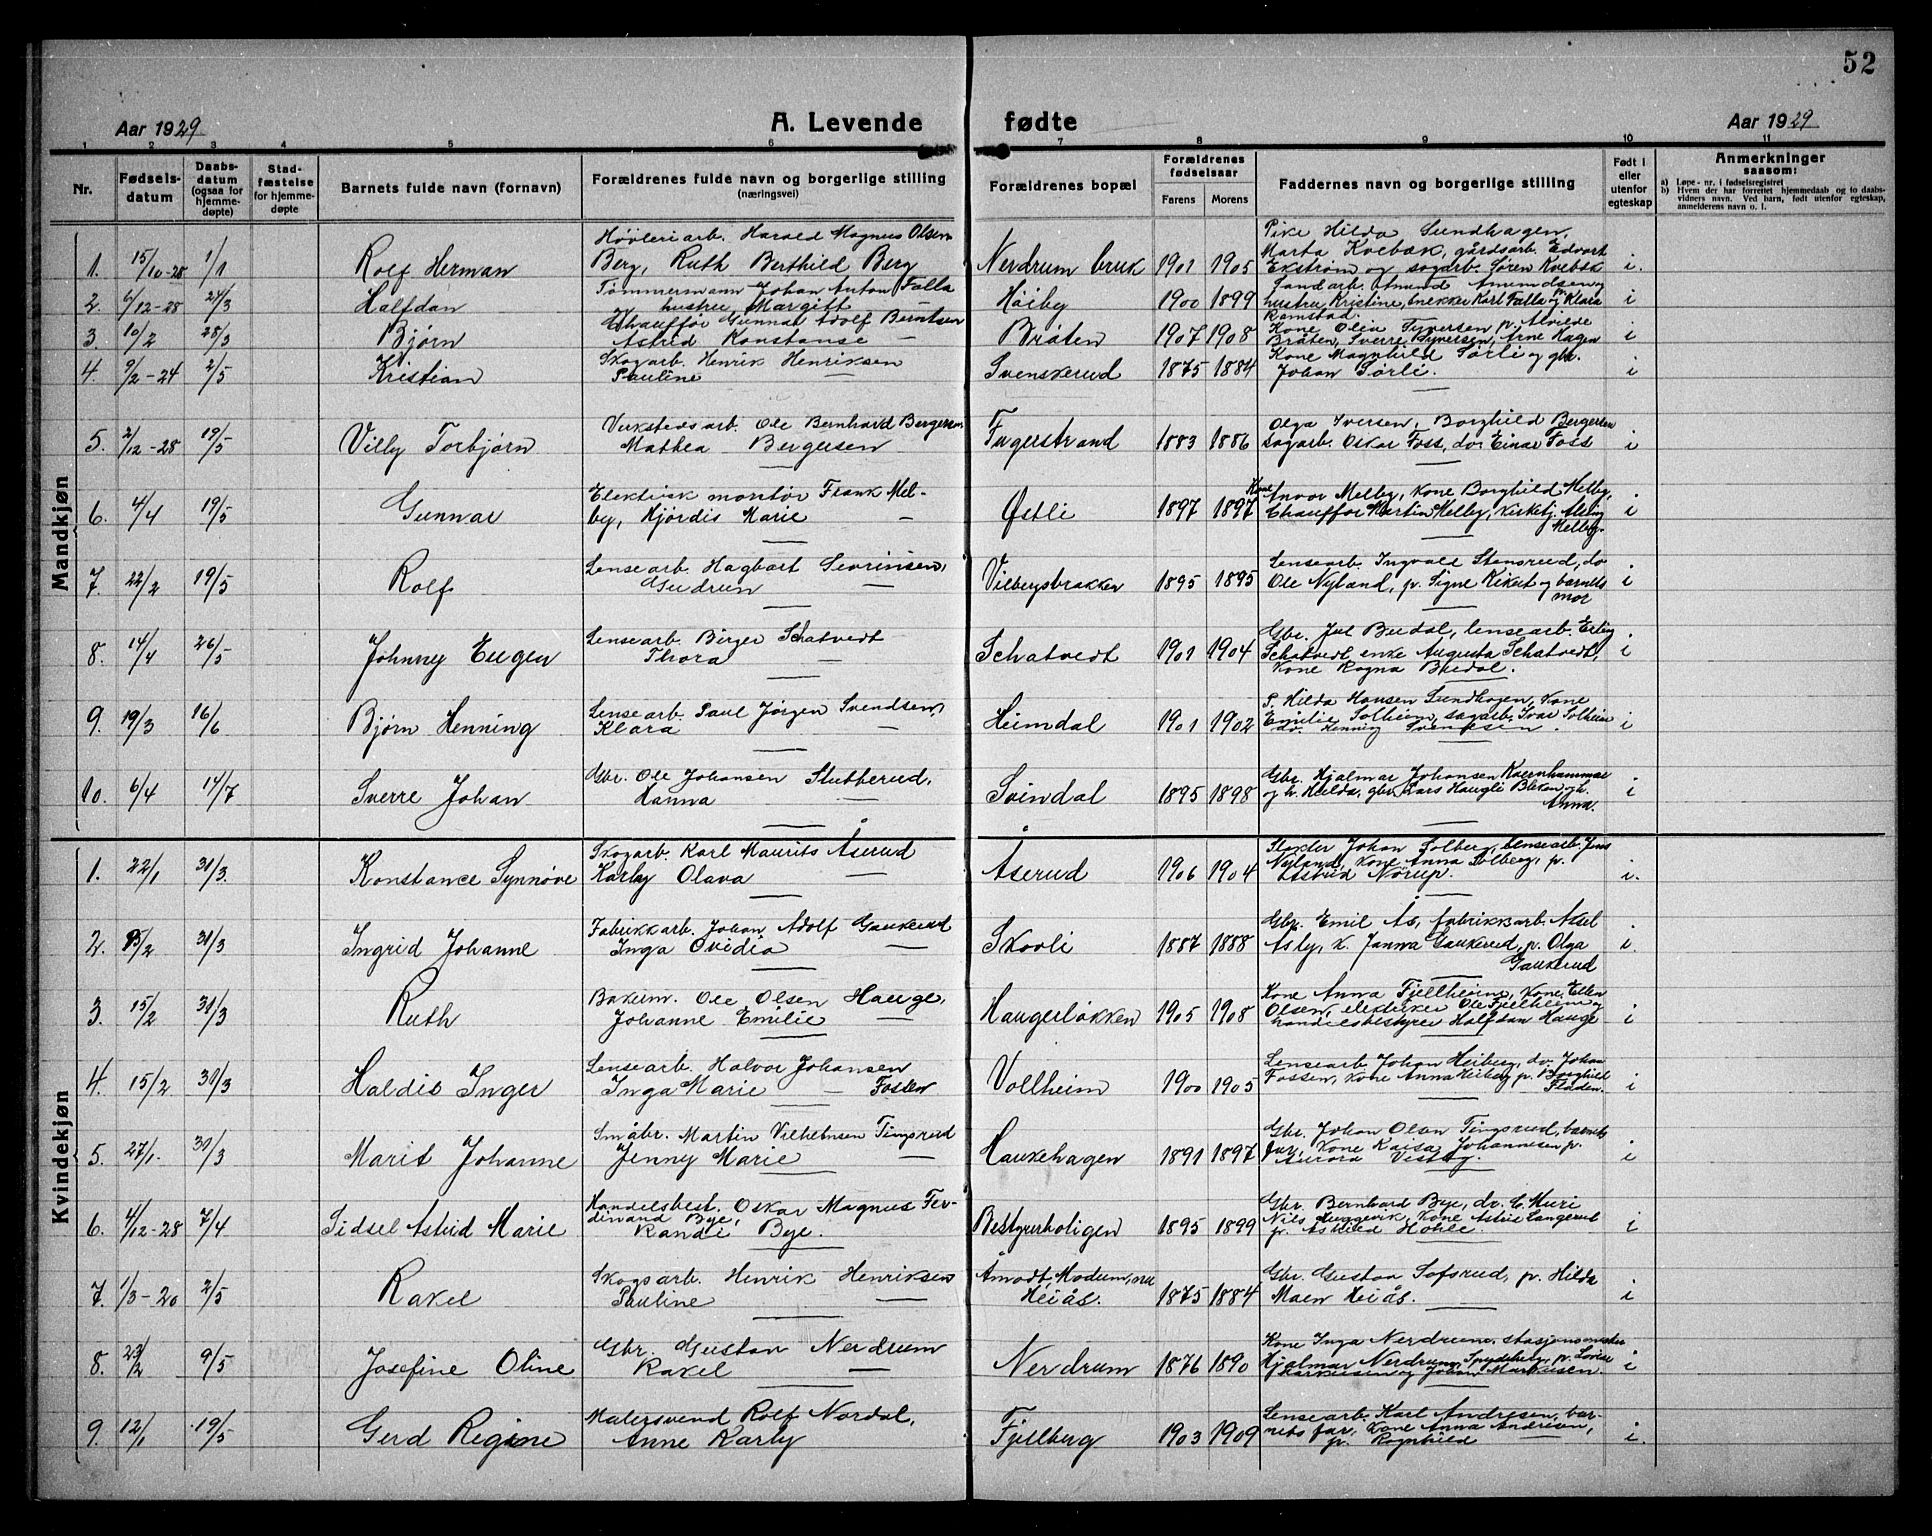 52
Aar 1929
A. Levende
fødte
Aar 1929
1 2 3 4 5 6 7 8 9 10 11
Nr.
Fødsels-
datum
Daabs-
datum
(ogsaa for
hjemme-
døpte)
Stad-
fæstelse
for hjemme-
døpte
Barnets fulde navn (fornavn)
Forældrenes fulde navn og borgerlige stilling
(næringsvei)
Forældrenes bopæl
Forældrenes
fødselsaar
Farens Morens
Faddernes navn og borgerlige stilling
Født i
eller
utenfor
egteskap
Anmerkninger
saasom:
a) Løpe-nr. i fødselsregistret
b) Hvem der har forrettet hjemmedaab og to daabs-
vidners navn. Ved barn, født utenfor egteskap,
anmelderens navn o. l.
Mandkjøn
1. 15/10-28 1/1 Rolf Herman
Høvleriarb. Harald Magnus Olsen
Berg, Ruth Berthild Berg
Nerdrum bruk 1901 1905
Pike Hilda Sundhagen,
Marta Kvebæk, gårdsarb. Edvart
Ekstrøm og sagarb. Søren Kvebæk
i.
2. 6/12-28 24/3 Halfdan
Tømmermann Johan Anton Falla
hustru Margitt —
Høiby 1900 1899
Landarb. Amund Amundsen og
hustru Kristine, snekker Karl Falla og Klara
Ramstad.
i
3. 10/2 28/3 Bjørn
Chauffør Gunnar Adolf Berntsen
Astrid Konstanse —
Bråten 1907 1908
Kone Olia Syversen, p. Alvilde
Bråten, Sverre Syversen, Arne Hagen
i
4. 9/2-24 2/5 Kristian
Skogarb. Henrik Henriksen
Pauline —
Svenskerud 1875 1884
Kone Magnhild Sørli og gbr.
Johan Sørli.
i
5. 2/12-28 19/5 Villy Torbjørn
Verkstedsarb. Ole Bernhard Bergersen
Mathea Bergersen
Fugerstrand 1883 1886
Olga Iversen, Borghild Bergersen
sagarb. Oskar Foss, do. Einar Foss
i
6. 4/4 19/5 Gunnar
Elektrisk montør Frank Mel-
by, Hjørdis Marie —
Østli 1897 1897
Kone Anvor Melby, Kone Borghild Melby,
Chauffør Martin Melby, kirketj.
Melby.
i
7. 22/2 19/5 Rolf
Lensearb. Hagbart Severinsen,
Gudrun
Vilbergsbrakken 1895 1895
Lensearb. Ingvald Stensrud, do
Ole Nyland, p. Signe og barnets
mor
i
8. 14/4 26/5 Johnny Eugen
Lensearb. Birger Schatvedt
Thora —
Schatvedt 1901 1904
Gbr. Jul Buedal, lensearb. Erling
Schatvedt, enke Augusta Schatvedt,
Kone Ragna Buedal.
i
9. 19/3 16/6 Bjørn Henning
Lensearb. Paul Jørgen Svendsen,
Klara —
Heimdal 1901 1902
P. Hilda Hansen Sundhagen, Kone
Emilie Solheim, sagarb. Ivar Solheim
do. Henning Svendsen.
i
10. 6/4 14/7 Sverre Johan
Gbr. Ole Johansen Slutterud,
Hanna —
Svindal 1895 1898
Gbr. Hjalmar Johansen
og h. Hilda, gbr. Lars Haugli og h.
Anna.
i
Kvindekjøn
1. 22/1 31/3 Konstance Synnøve
Skogarb. Karl Maurits Åserud
Karly Olava —
Åserud 1906 1904
Slakter Johan Solberg, lensearb. Jens
Nyland, Kone Anna Solberg, p.
Astrid Nørup.
i.
2. 15/2 31/3 Ingrid Johanne
Fabrikkarb. Johan Adolf Gaukerud
Inga Ovidia —
Skovli 1887 1888
Gbr. Emil Ås, fabrikkarb. Aksel
Asly, k. Janna Gaukerud, p. Olga
Gaukerud
i.
3. 15/2 31/3 Ruth
Ole Olsen Hauge,
Johanne Emilie —
Haugerløkken 1905 1908
Kone Anna Fjellheim, Kone Ellen
Olsen, elektriker Ole Fjellheim og
handelsbestyrer Halfdan Hauge
i
4. 15/2 31/3 Haldis Inger
Lensearb. Halvor Johansen
Inga Marie — Fossen
Vollheim 1900 1905
Lensearb. Johan Heiberg, do. Johan
Fossen, Kone Anna Heiberg, p. Borghild
Fladen.
i
5. 27/1. 31/3 Marit Johanne
Småbr. Martin Vilhelmsen Tingsrud
Jenny Marie —
Haukehagen 1891 1897
Gbr. Johan Olsen Tingsrud, barnets
far, Kone Kaisa Johannesen, p.
Aurora Vestby.
i
6. 4/12-28 7/4 Sidsel Astrid Marie
Handelsbest. Oskar Magnus Fer-
dinand Bye,
Randi Bye.
Bestyrerboligen 1895 1899
Gbr. Bernhard Bye, do. C. Huri
Nils, Kone Astrid Langerud
p. Astrid Hohle.
i
7. 1/3-20 2/5 Rakel
Skogsarb. Henrik Henriksen
Pauline —
Åmodt, Modum, nu
Heiås. 1875 1884
Gbr. Gustav Sofsrud, p. Hilda
Maen Heiås.
i
8. 23/2 9/5 Josefine Oline
Gbr. Gustav Nerdrum
Rakel —
Nerdrum 1876 1890
Kone Inga Nerdrum, stasjonsmester
Hjalmar Nerdrum, Spydeberg, p. Lovise
Markussen og Johan Markussen.
i
9. 12/1 19/5 Gerd Regine
Malersvend Rolf Nordal,
Anne Karly
Fjellberg 1903 1909
Lensearb. Karl Andresen, bar-
nets far, Kone Anna Andresen,
p. Ragnhild
i.